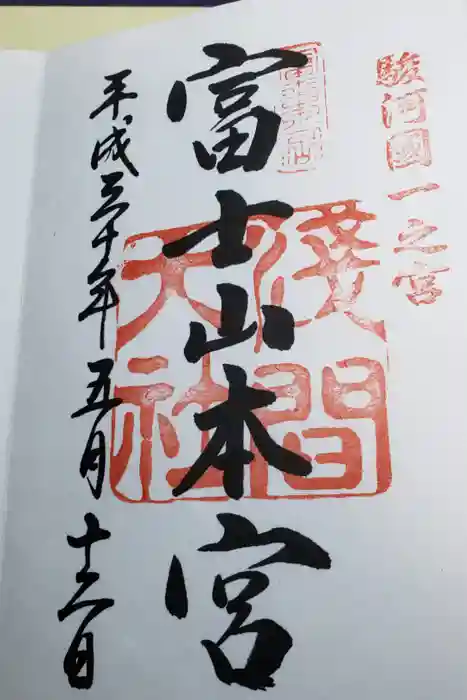 駿河國一之宮
富士山本宮
淺間大社
平成三十年五月十六日